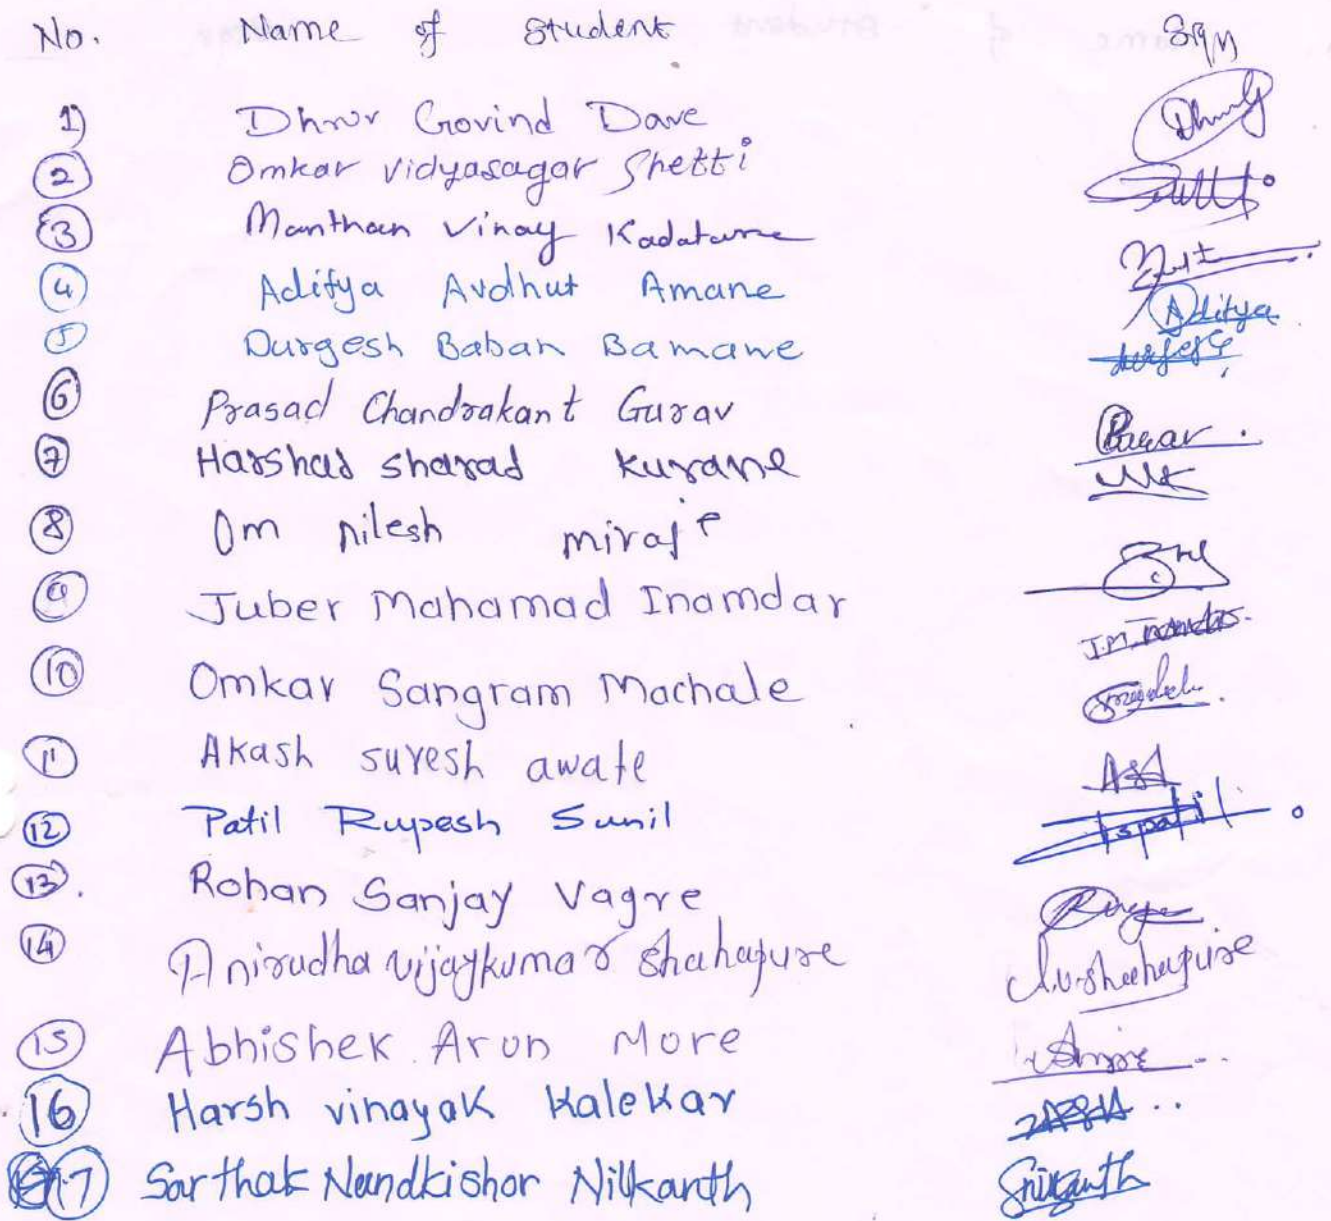 No. Name of Student Sign
1) Dhruv Govind Dave
2 Omkar Vidyasagar Shetti
3 Manthan Vinay Kadatare
4 Aditya Avdhut Amane Aditya
5 Durgesh Baban Bamane durgesh
6 Prasad Chandrakant Gurav
7 Harshad Sharad Kurane
8 Om nilesh miraje
9 Juber Mahamad Inamdar J.M.Inamdar
10 Omkar Sangram Machale
11 Akash suresh awate ASA
12 Patil Rupesh Sunil
13. Rohan Sanjay Vagre
14 Anirudha vijaykumar Shahapure A.V.Shahapure
15 Abhishek Arun More
16 Harsh vinayak Kalekar
17 Sarthak Nandkishor Nilkanth Snilkanth